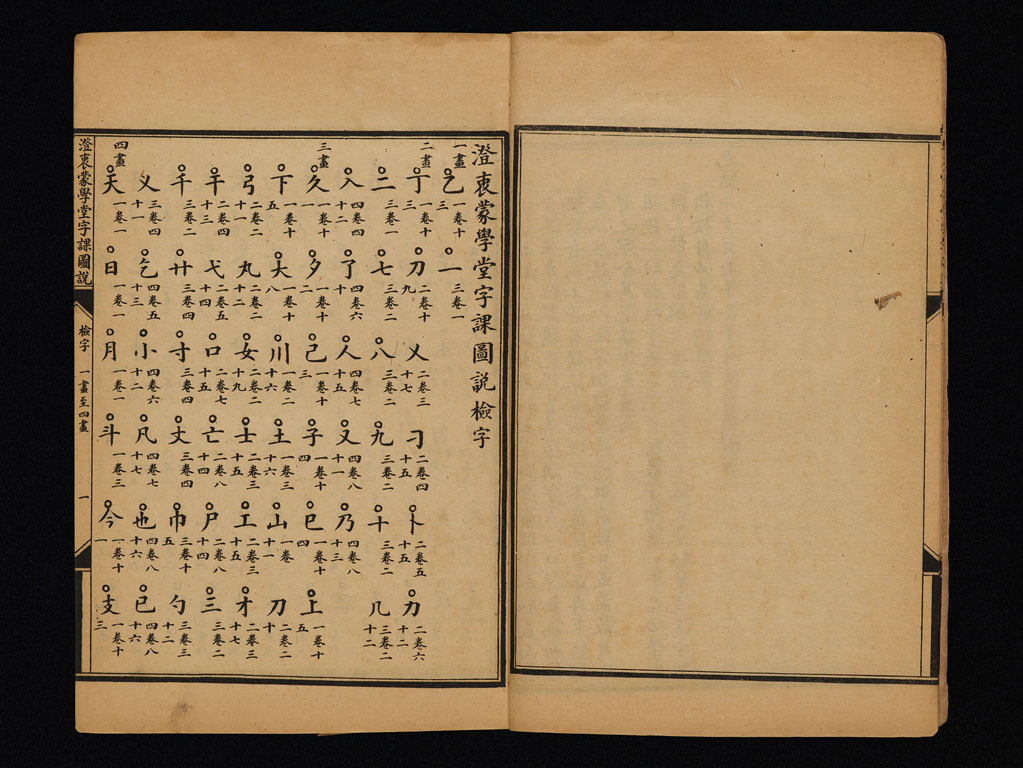 澄衷蒙學堂字課圖說檢字
一畫
乙 一卷十三 一 三卷一
二畫
丁 一卷十三 刀 二卷十九 乂 二卷三十七 刁 二卷四十五 卜 二卷五十五 力 二卷六十二
二 三卷一 七 三卷二 八 三卷二 九 三卷二 十 三卷二 几 三卷二十二
入 四卷四十二 了 四卷六十 人 四卷七十五 又 四卷八十一 乃 四卷八十三
三畫
久 一卷十一 夕 一卷十二 己 一卷十三 子 一卷十四 巳 一卷十四 上 一卷十五
下 一卷十五 大 一卷十八 川 一卷二十六 土 一卷三十六 山 一卷十一 刃 二卷二十
弓 二卷二十一 丸 二卷二十二 女 二卷二十九 士 二卷三十五 工 二卷三十五 才 二卷三十七
干 二卷四十三 弋 二卷五十四 口 二卷七十五 亡 二卷八十四 尸 二卷八十四 三 三卷二
千 三卷二 廿 三卷四 寸 三卷四 丈 三卷四 巾 三卷十五 勺 三卷三十二
乂 三卷四十一 乞 四卷五十三 小 四卷六十二 凡 四卷七十七 也 四卷八十六 已 四卷八十六
四畫
天 一卷一 日 一卷一 月 一卷一 斗 一卷三 今 一卷十一 支 一卷十三
澄衷蒙學堂字課圖說
檢字 一畫至四畫 一